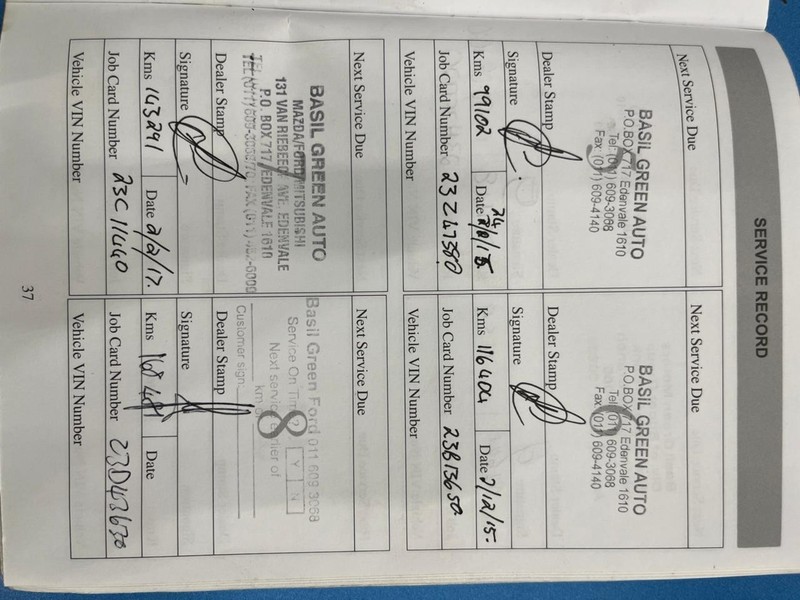 SERVICE RECORD
Next Service Due
BASIL GREEN AUTO
P.O.BOX 717 Edenvale 1610
Tel: (011) 609-3068
Fax: (011) 609-4140
Dealer Stamp
Signature
Kms 99102 Date 24/2/15
Job Card Number 23Z47580
Vehicle VIN Number
Next Service Due
BASIL GREEN AUTO
P.O.BOX 717 Edenvale 1610
Tel: (011) 609-3068
Fax: (011) 609-4140
6
Dealer Stamp
Signature
Kms 116404 Date 2/12/15
Job Card Number 23B13650
Vehicle VIN Number
Next Service Due
BASIL GREEN AUTO
MAZDA/FORD/MITSUBISHI
131 VAN RIEBEECK AVE EDENVALE
P.O. BOX 717 EDENVALE 1610
Dealer Stamp
Signature
Kms 143291 Date 2/2/17.
Job Card Number 23C11440
Vehicle VIN Number
Next Service Due
Basil Green Ford 011 609 3068
Service On Time? Y N
8
Next service earlier of
km or
Customer sign.
Dealer Stamp
Signature
Kms Date
Job Card Number 23D43630
Vehicle VIN Number
37